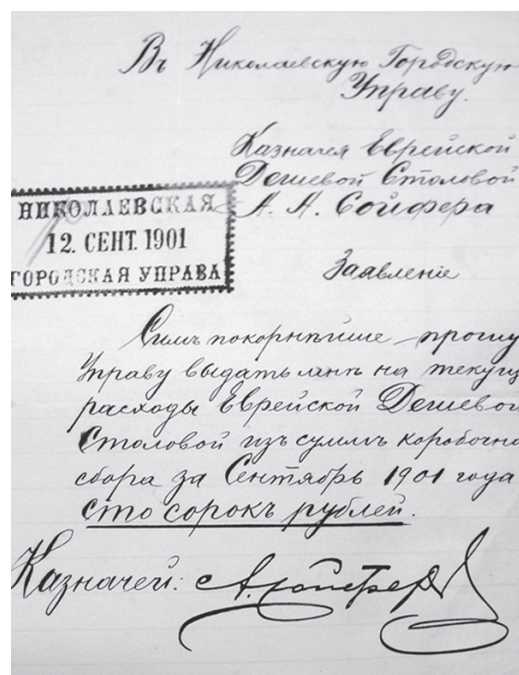 Въ Николаевскую Городскую
Управу.
Казначея Еврейской
Дешевой Столовой
А. А. Сойфера
НИКОЛАЕВСКАЯ
12. СЕНТ. 1901
ГОРОДСКАЯ УПРАВА
Заявленіе
Симъ покорнѣйше прошу
Управу выдать мнѣ на текущ
расходы Еврейской Дешевой
Столовой изъ суммъ коробочно
сбора за Сентябрь 1901 года
сто сорокъ рублей.
Казначей: А. Сойферъ